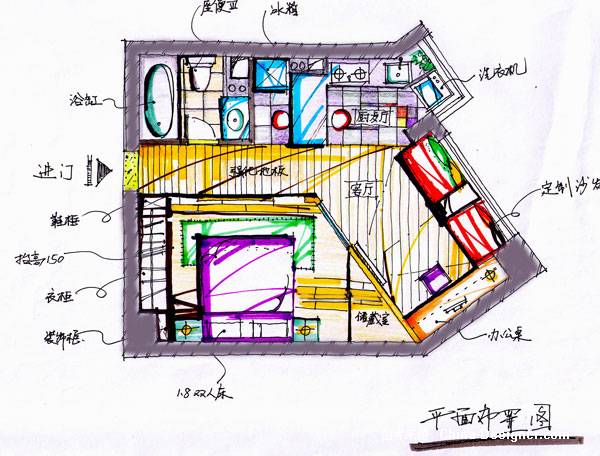 座便区
冰箱
洗衣机
浴缸
厨餐厅
进门
强化地板
客厅
定制沙发
鞋柜
抬高150
衣柜
储藏室
装饰柜
办公桌
1.8双人床
平面布置图